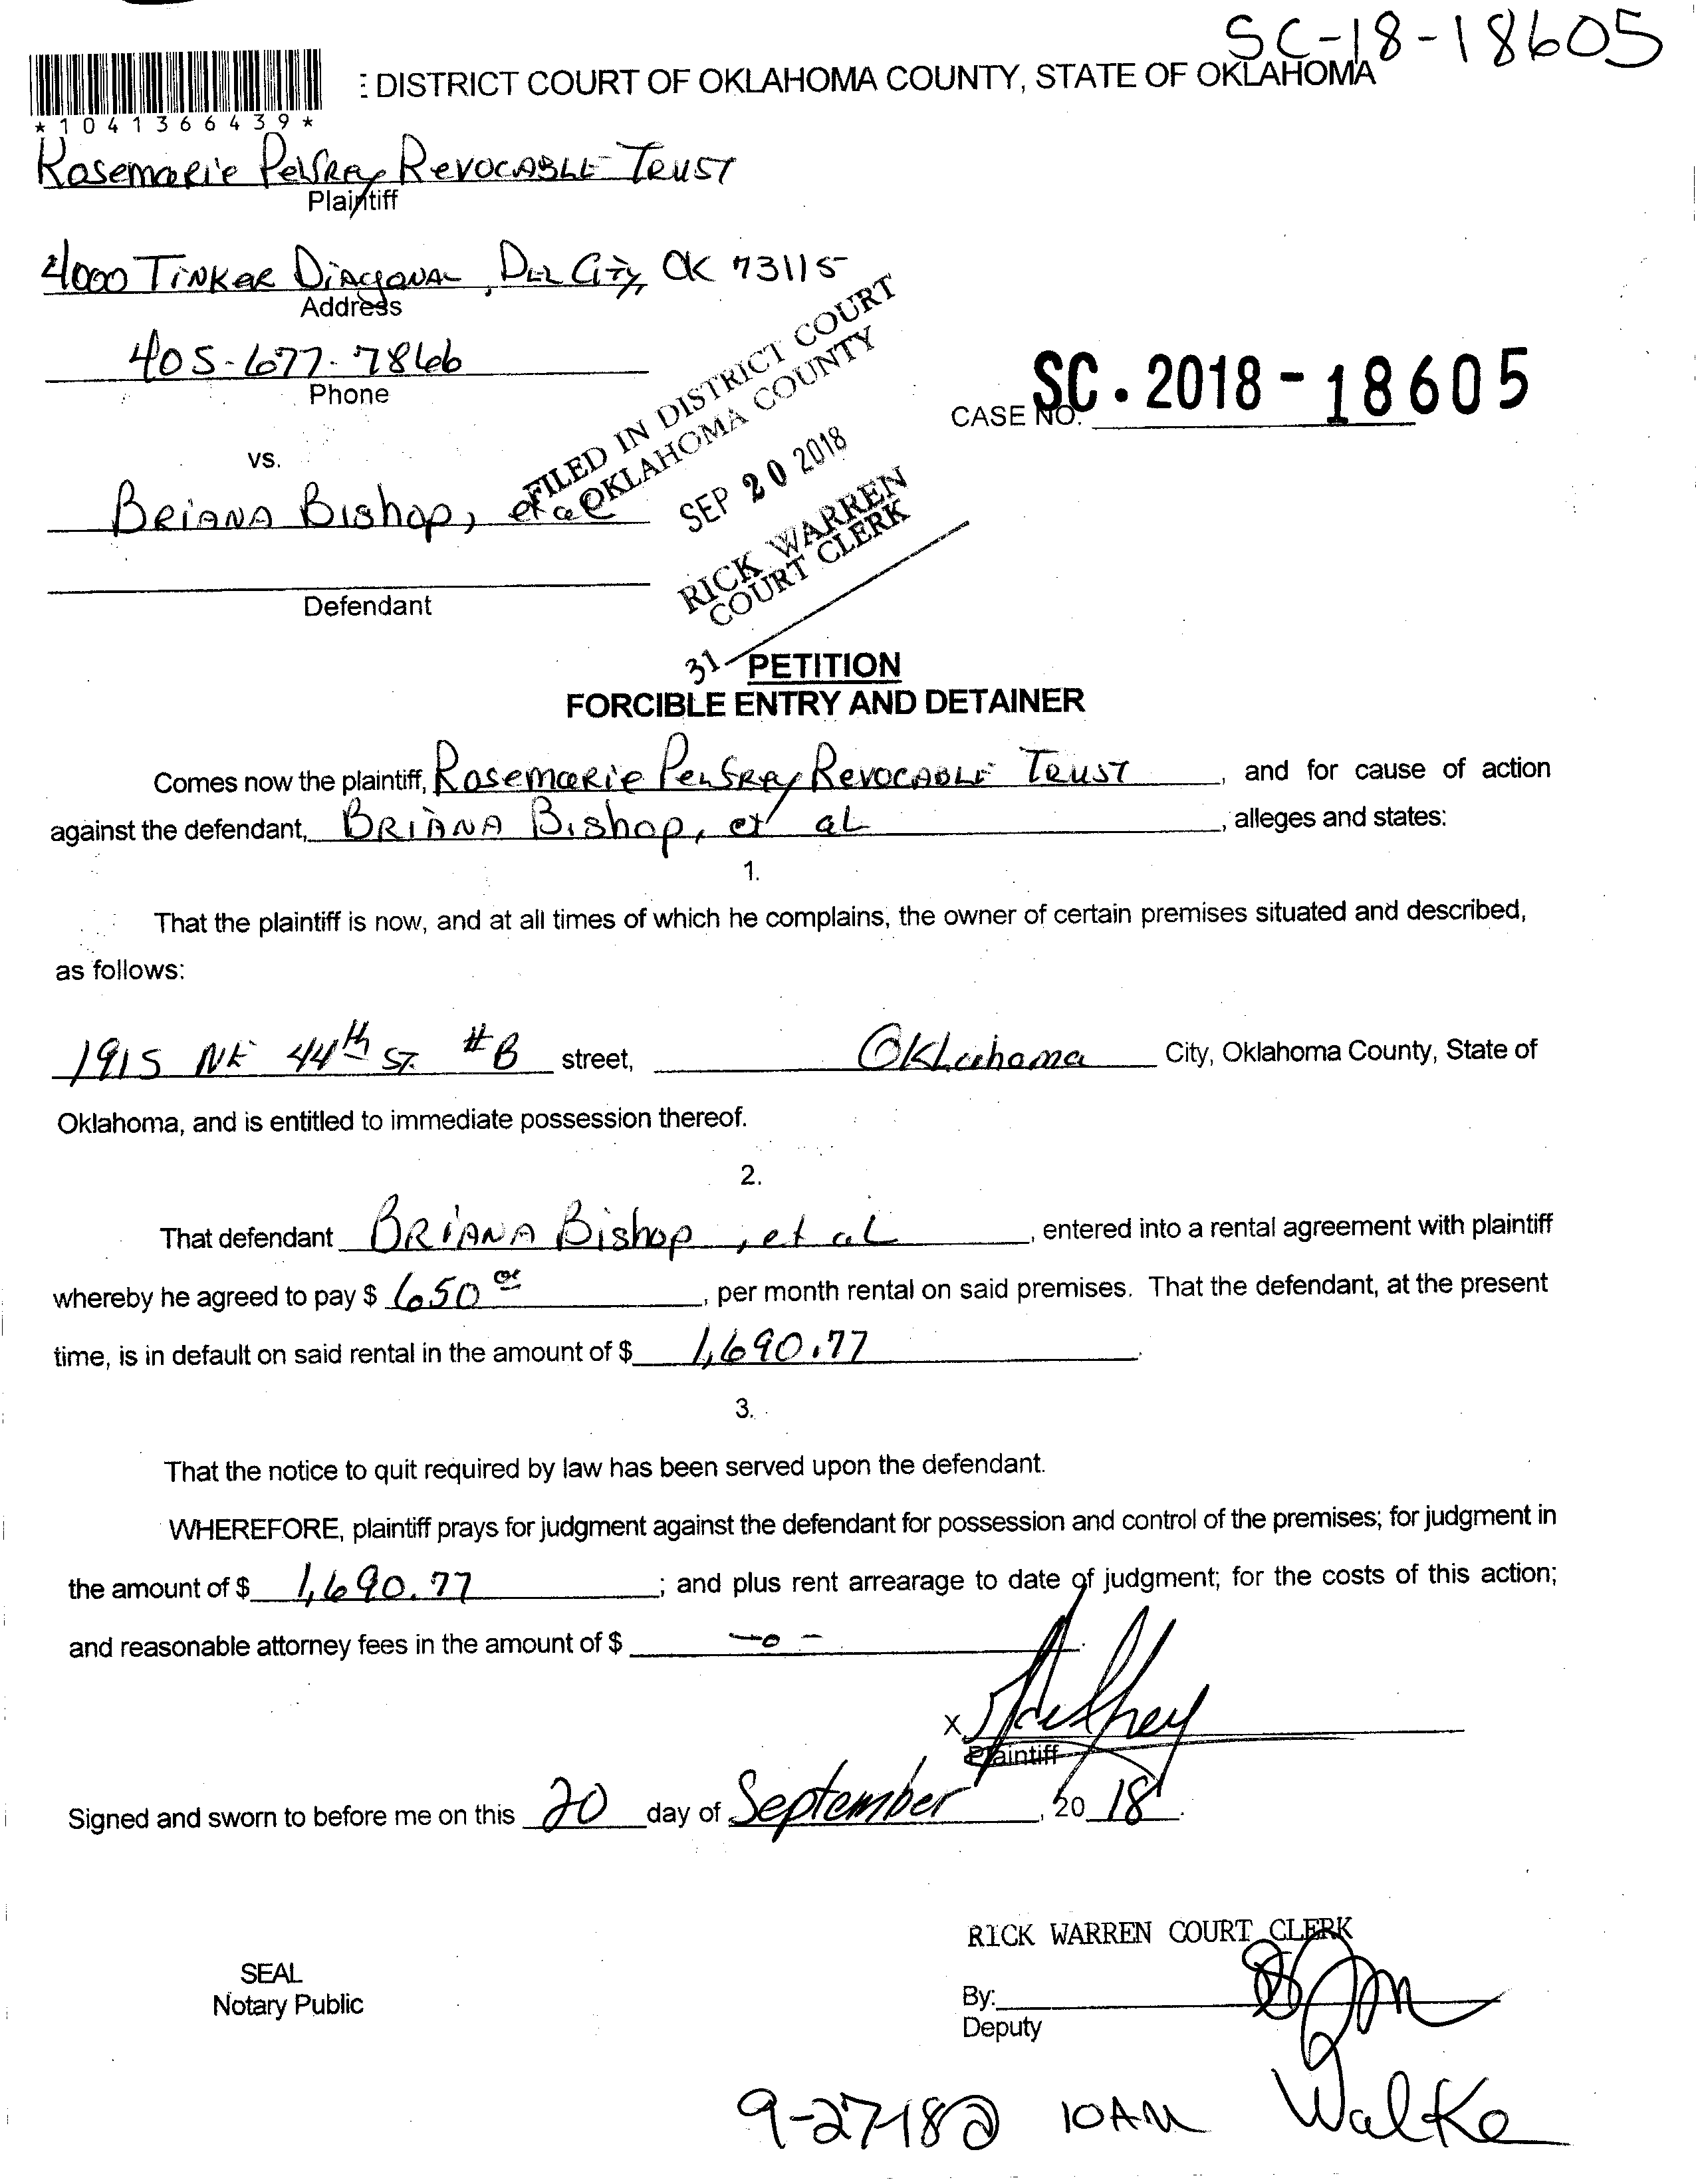 SC-18-18605
: DISTRICT COURT OF OKLAHOMA COUNTY, STATE OF OKLAHOMA
*1041366439*
Rosemarie Pelfrey Revocable Trust
Plaintiff
4000 Tinker Diagonal, Del City, OK 73115
Address
405-677-7866
Phone
FILED IN DISTRICT COURT
OKLAHOMA COUNTY
SEP 20 2018
RICK WARREN
COURT CLERK
31
CASE NO. SC-2018-18605
vs.
Briana Bishop, et al
Defendant
PETITION
FORCIBLE ENTRY AND DETAINER
Comes now the plaintiff, Rosemarie Pelfrey Revocable Trust, and for cause of action
against the defendant, Briana Bishop, et al, alleges and states:
1.
That the plaintiff is now, and at all times of which he complains, the owner of certain premises situated and described,
as follows:
1915 NE 44th St. #B street, Oklahoma City, Oklahoma County, State of
Oklahoma, and is entitled to immediate possession thereof.
2.
That defendant Briana Bishop, et al, entered into a rental agreement with plaintiff
whereby he agreed to pay $ 650 00, per month rental on said premises. That the defendant, at the present
time, is in default on said rental in the amount of $ 1,690.77.
3.
That the notice to quit required by law has been served upon the defendant.
WHEREFORE, plaintiff prays for judgment against the defendant for possession and control of the premises; for judgment in
the amount of $ 1,690.77; and plus rent arrearage to date of judgment; for the costs of this action;
and reasonable attorney fees in the amount of $ -0-.
X
Plaintiff
Signed and sworn to before me on this 20 day of September, 2018.
RICK WARREN COURT CLERK
SEAL
Notary Public
By:
Deputy
9-27-18@ 10AM Walke